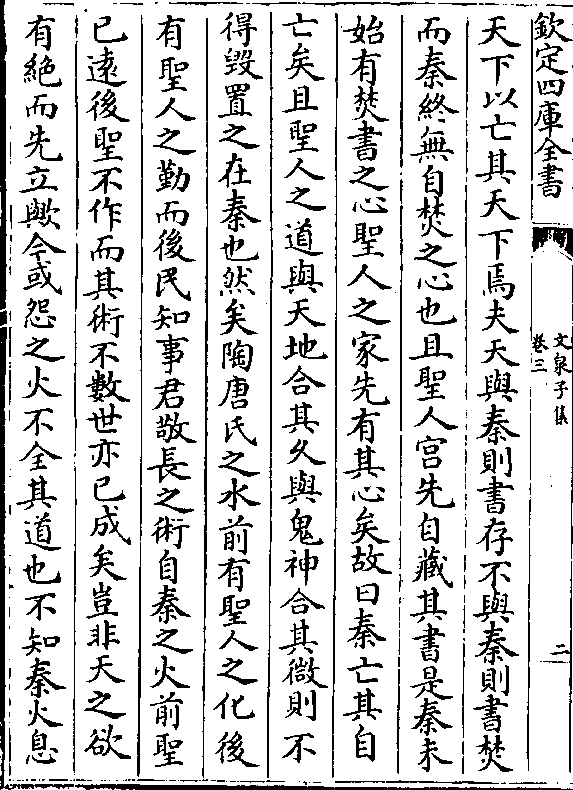 欽定四庫全書
文泉子集
卷三
二
天下以亡其天下焉夫天與秦則書存不與秦則書焚
而秦終無自焚之心也且聖人宫先自藏其書是秦未
始有焚書之心聖人之家先有其心矣故曰秦亡其自
亡矣且聖人之道與天地合其久與鬼神合其微則不
得毀置之在秦也然矣陶唐氏之水前有聖人之化後
有聖人之勤而後民知事君敬長之術自秦之火前聖
已遠後聖不作而其術不數世亦已成矣豈非天之欲
有絕而先立歟今或怨之火不全其道也不知秦火息